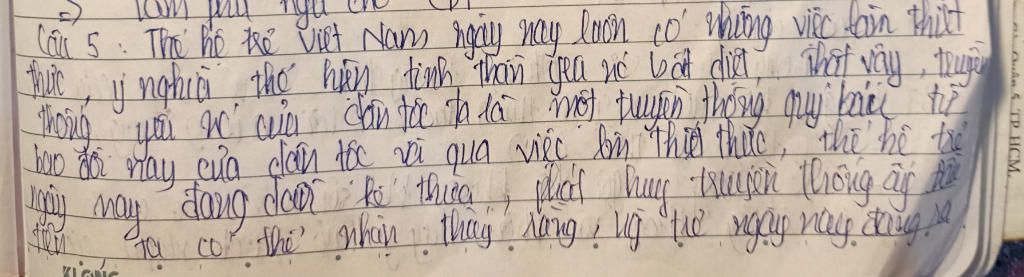 ⇒ làm phú ngu
Câu 5 : Thế hệ trẻ Việt Nam ngày nay luôn có những việc làm thiết
thực, ý nghĩa thể hiện tinh thần yêu nước bất diệt. Thật vậy, truyền
thống yêu nước của dân tộc ta là một truyền thống quý báu từ
bao đời nay của dân tộc và qua việc làm thiết thực, thế hệ trẻ
ngày nay đang dần kế thừa, phát huy truyền thống ấy. Đầu
tiên ta có thể nhận thấy rằng, ngày nay đang
TP HCM
KLONG